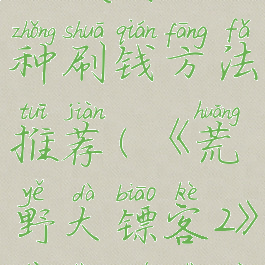 zhǒng shuā qián fāng fǎ
种刷钱方法
tuī jiàn huāng
推荐(《荒
yě dà biāo kè
野大镖客2》